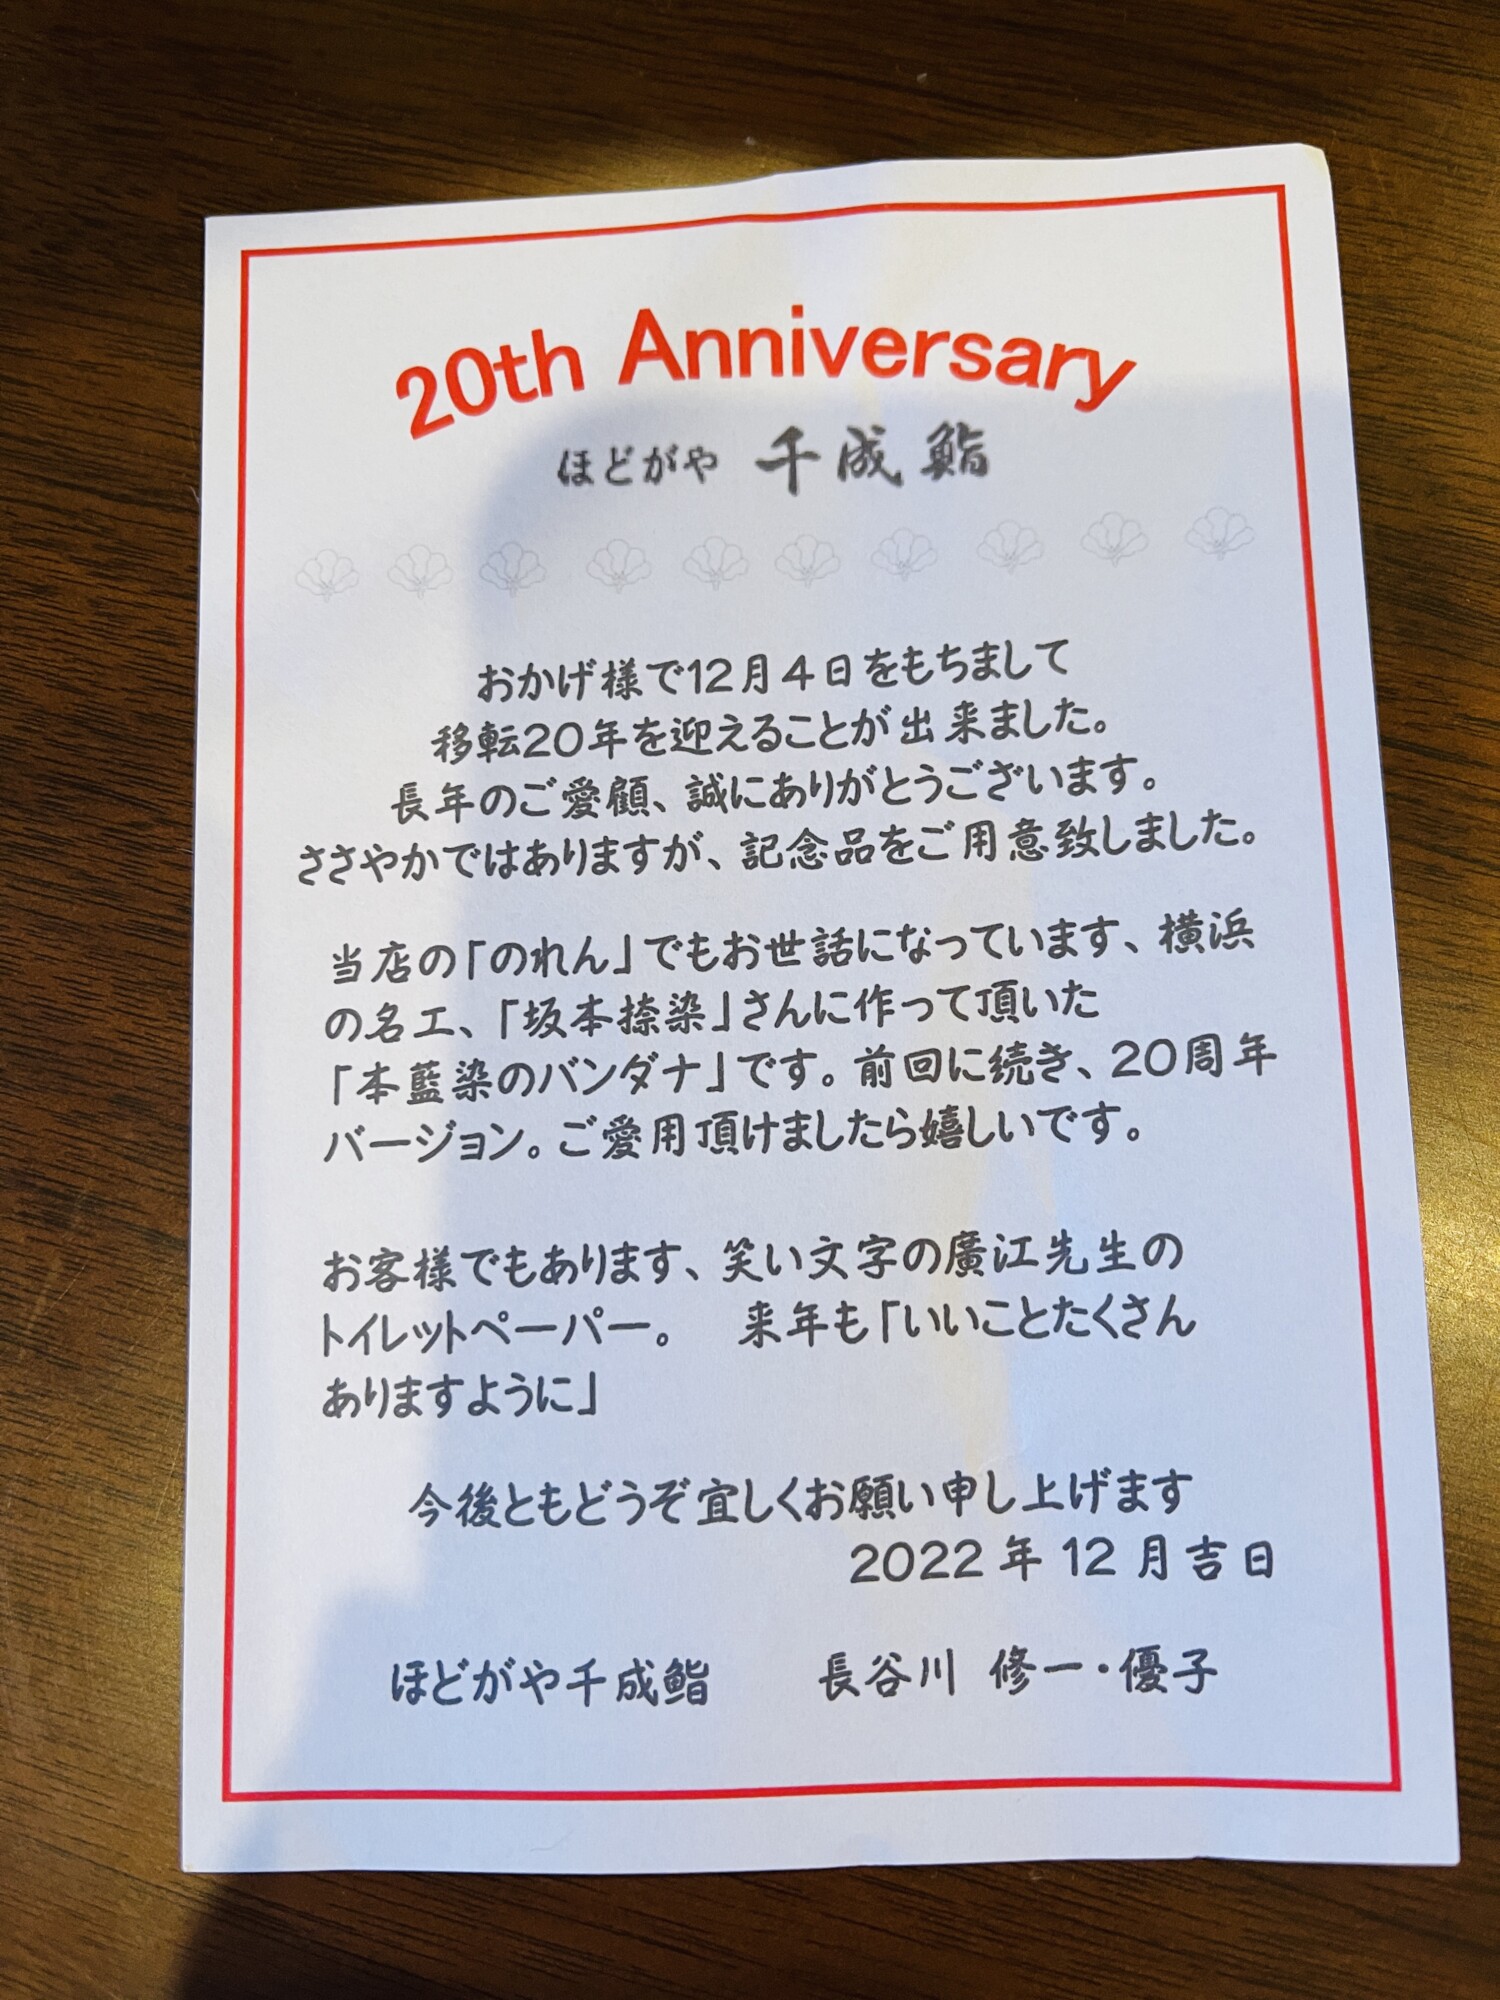 20th Anniversary
ほどがや 千成鮨
おかげ様で12月4日をもちまして
移転20年を迎えることが出来ました。
長年のご愛顧、誠にありがとうございます。
ささやかではありますが、記念品をご用意致しました。
当店の「のれん」でもお世話になっています、横浜
の名工、「坂本捺染」さんに作って頂いた
「本藍染のバンダナ」です。前回に続き、20周年
バージョン。ご愛用頂けましたら嬉しいです。
お客様でもあります、笑い文字の廣江先生の
トイレットペーパー。 来年も「いいことたくさん
ありますように」
今後ともどうぞ宜しくお願い申し上げます
2022年12月吉日
ほどがや千成鮨 長谷川 修一・優子